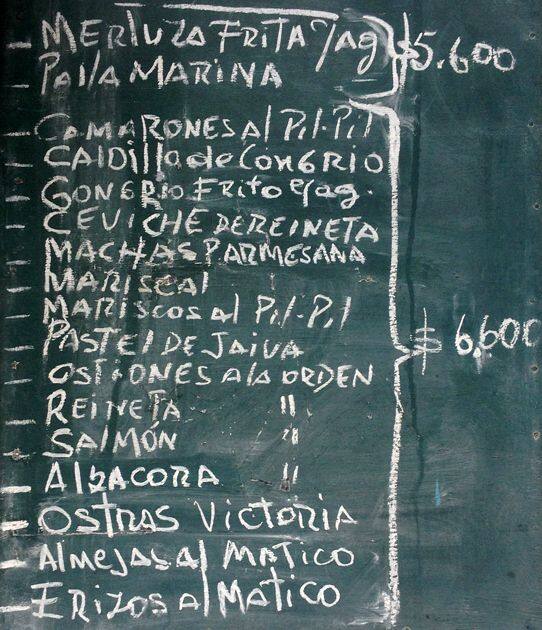 - MERLUZA FRITA C/AG
- PAILA MARINA
$5.600
- CAMARONES Al Pil-Pil
- CALDillo de CONGRIO
- CONGRIO FRITO C/ag.
- CEVICHE DE REINETA
- MACHAS PARMESANA
- MARISCAl
- MARISCOS al Pil-Pil
- PASTEl DE JAIVA
- OSTIONES A la ORDEN
- REINETA "
- SAlMÓN "
- AlbACORA "
- OSTRAS VICTORIA
- Almejas al MATICO
- ERIZOS al MATICO
$6.600